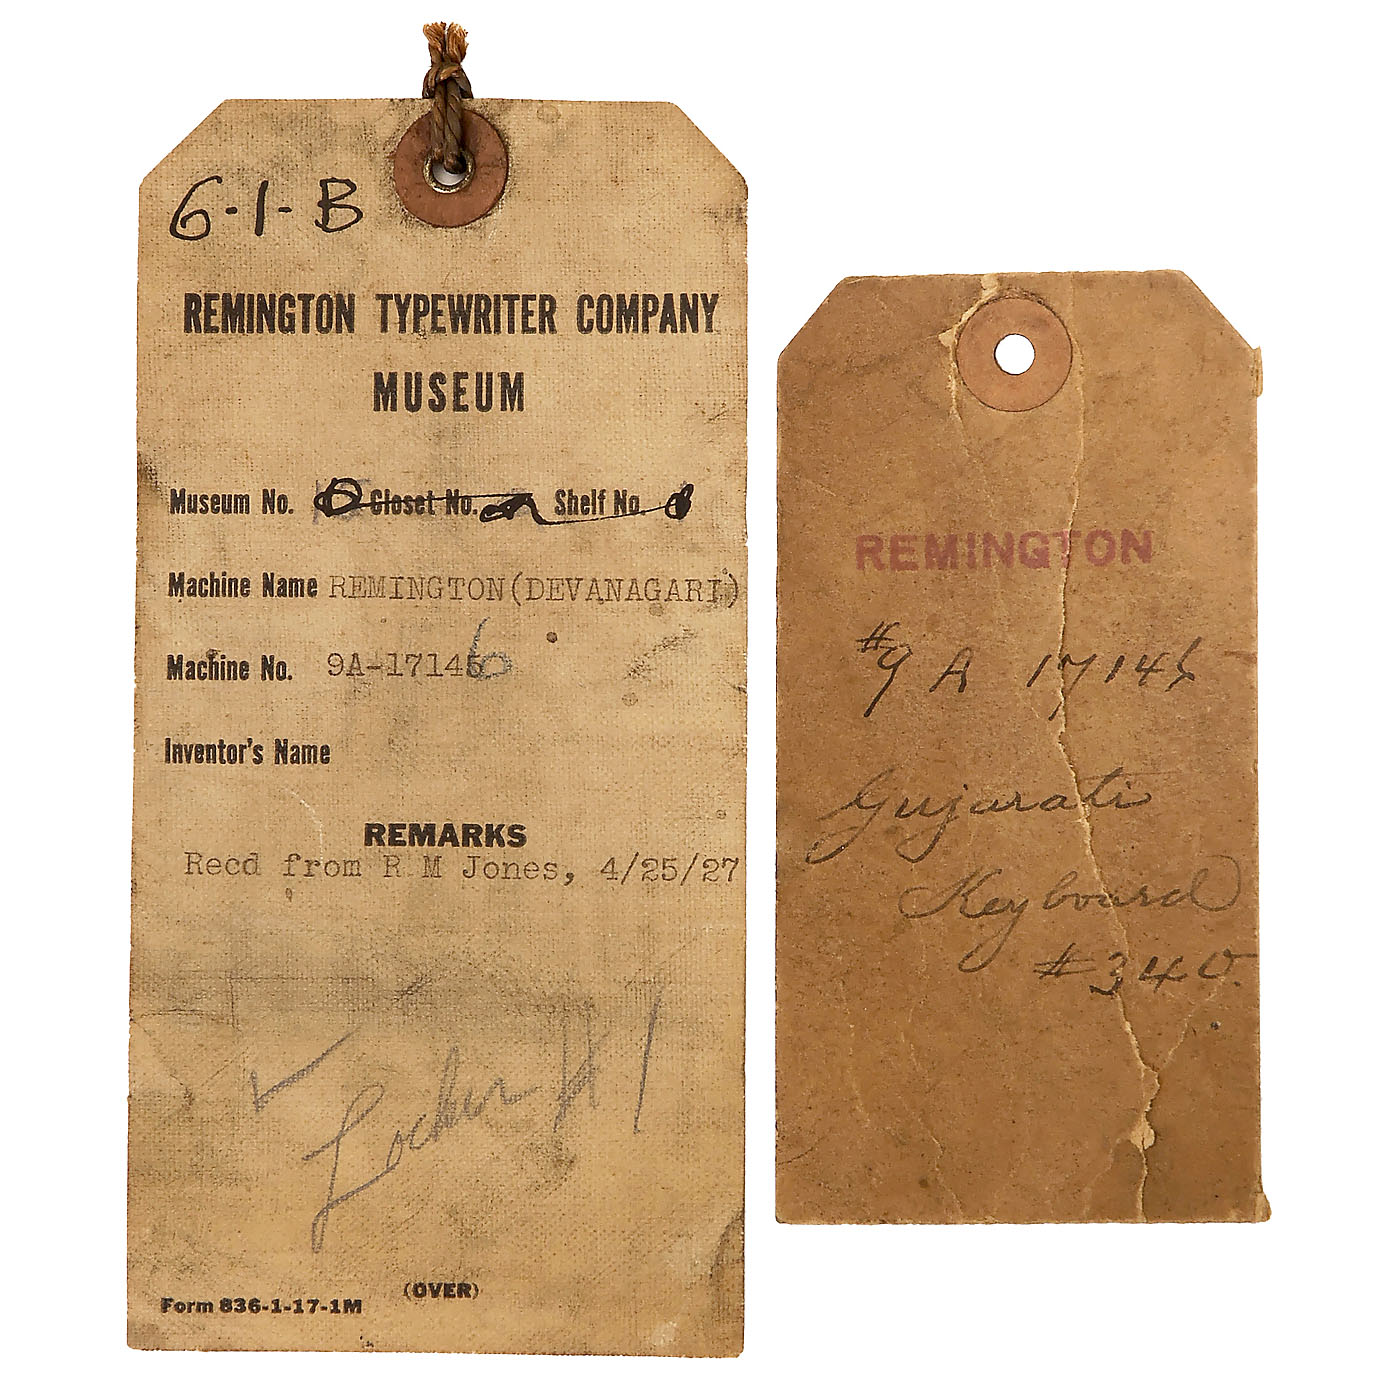 6-1-B
REMINGTON TYPEWRITER COMPANY
MUSEUM
Museum No. Closet No. Shelf No.
Machine Name REMINGTON(DEVANAGARI)
Machine No. 9A-17146
Inventor's Name
REMARKS
Recd from R M Jones, 4/25/27
Locker # 1
(OVER)
Form 836-1-17-1M
REMINGTON
#9 A 17146
Gujarati
Keyboard
#340.